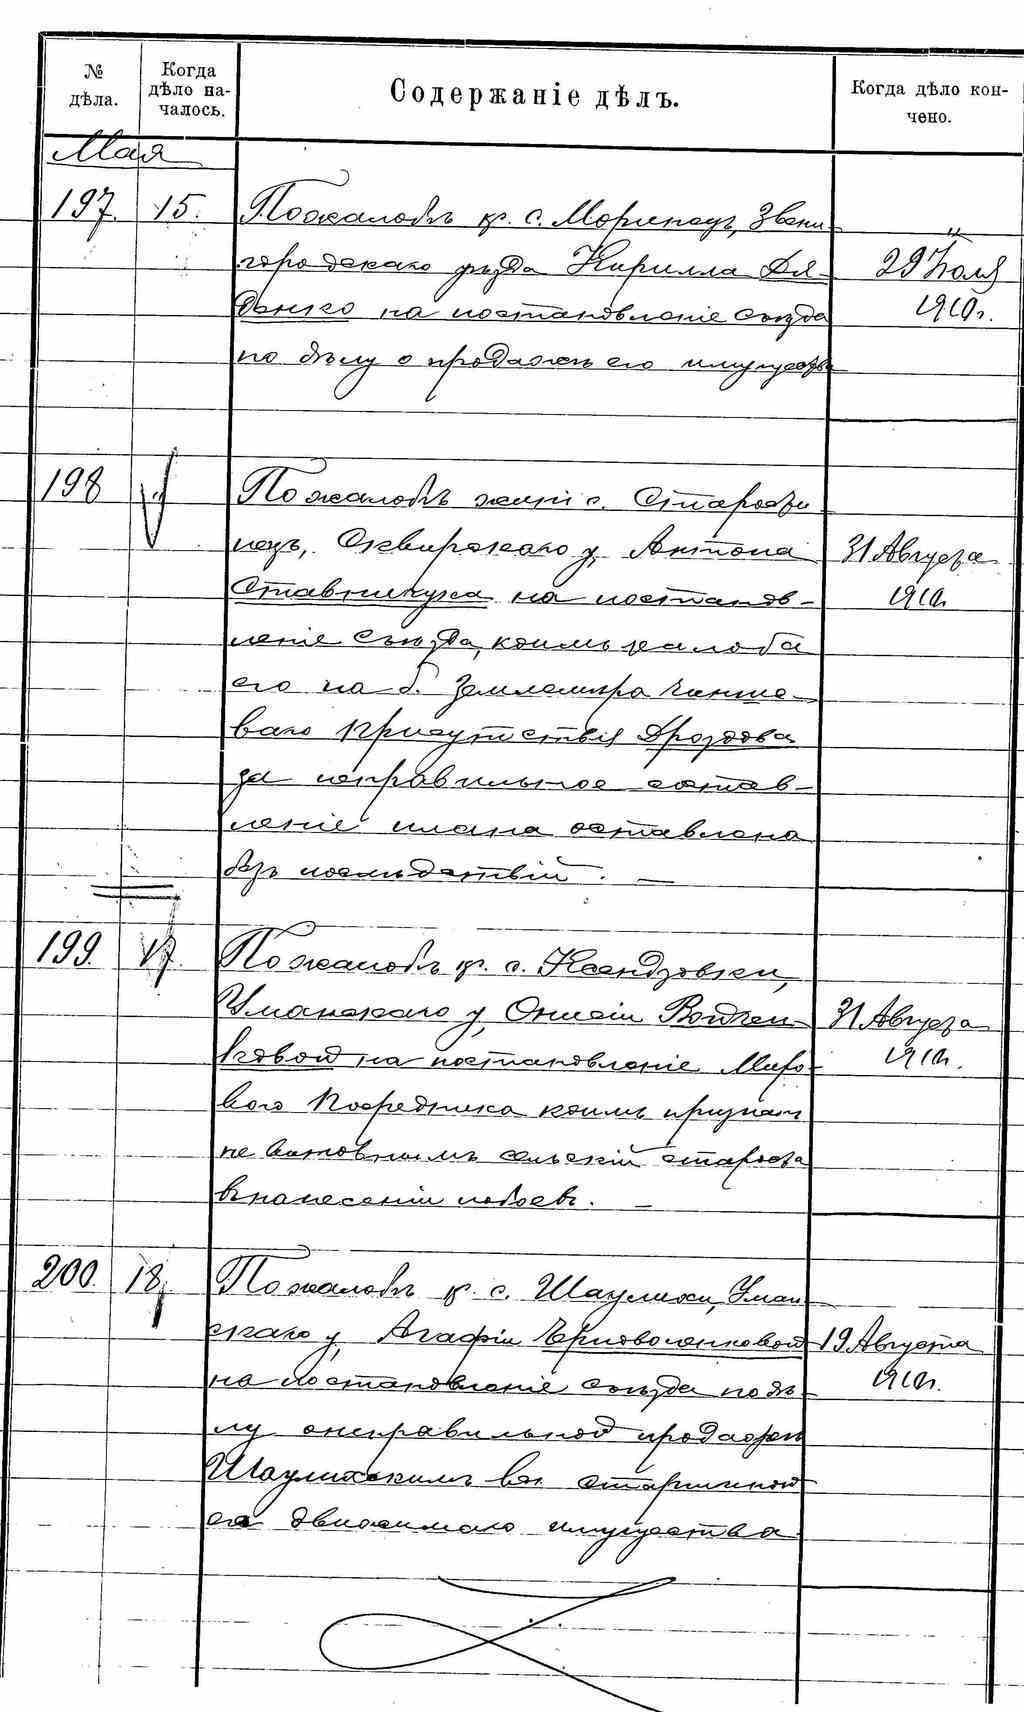 № дѣла.
Когда дѣло началось.
Содержаніе дѣлъ.
Когда дѣло кончено.
Мая
197. 15. По жалобѣ кр. с. Моринецъ, Звени-
городскаго уѣзда Кирилла Дя-
денко на постановленіе съѣзда
по дѣлу о продажѣ его имущества
29 Іюля
1910г.
198
По жалобѣ жит. с. Старостин-
ецъ, Сквирскаго у, Антона
Ставничука на постанов-
леніе съѣзда, коимъ жалоба
его на б. Землемѣра чинше-
ваго присутствія Дроздова
за неправильное состав-
леніе плана оставлена
безъ послѣдствій. —
31 Августа
1910г.
199. 17. По жалобѣ кр. с. Ксендзовки,
Уманскаго у, Онисіи
на постановленіе Миро-
ваго Посредника коимъ признанъ
не виновнымъ сельскій староста
въ нанесеніи побоевъ. —
31 Августа
1910г.
200. 18. По жалобѣ кр. с. Шаулихи, Уман-
скаго у, Агафіи Чорноволенковой
на постановленіе съѣзда по дѣ-
лу о неправильной продажѣ
Шаулихскимъ вол. старшиной
ея движимаго имущества.
19 Августа
1910г.